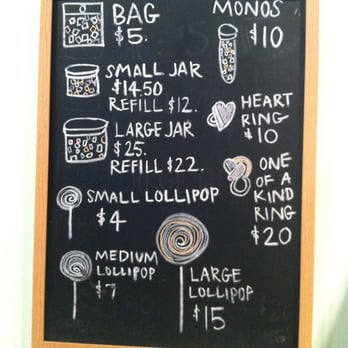 BAG
$5.
SMALL JAR
$14.50
REFILL $12.
LARGE JAR
$25.
REFILL $22.
SMALL LOLLIPOP
$4
MEDIUM
LOLLIPOP
$7
LARGE
LOLLIPOP
$15
MONOS
$10
HEART
RING
$10
ONE
OF A
KIND
RING
$20